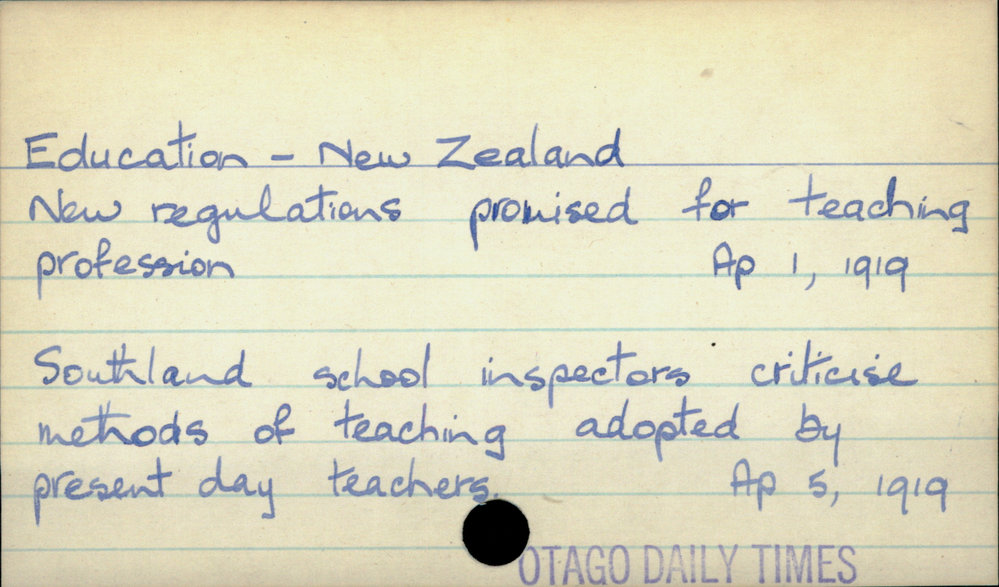 Education - New Zealand
New regulations promised for teaching
profession Ap 1, 1919
Southland school inspectors criticise
methods of teaching adopted by
present day teachers. Ap 5, 1919
OTAGO DAILY TIMES